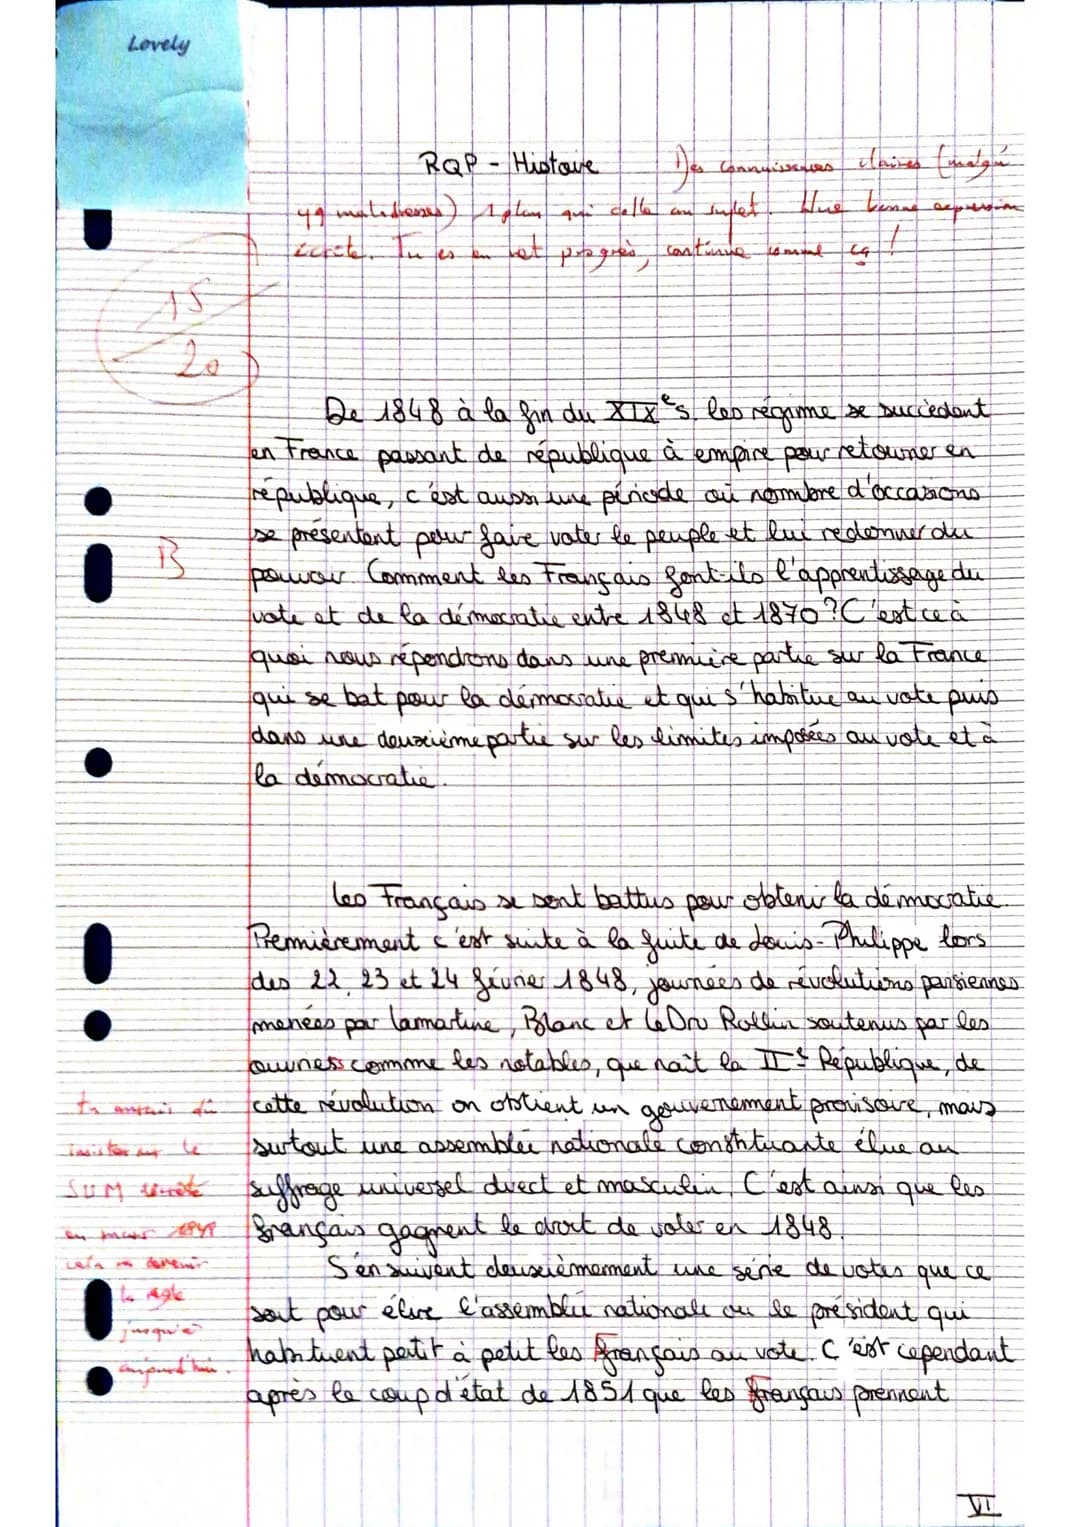 Lovely
RQP - Histoire
Des connaissances claires (malgré
qq maladresses) 1 plan qui colle au sujet. Une bonne expression
écrite. Tu es en net progrès, continue comme ça !
15
20
De 1848 à la fin du XIXe s. les régime se succèdent
en France passant de république à empire pour retourner en
république, c'est aussi une période où nombre d'occasions
se présentent pour faire voter le peuple et lui redonner du
B
pouvoir. Comment les Français font-ils l'apprentissage du
vote et de la démocratie entre 1848 et 1870 ? C'est ce à
quoi nous répondrons dans une première partie sur la France
qui se bat pour la démocratie et qui s'habitue au vote puis
dans une deuxième partie sur les limites imposées au vote et à
la démocratie.
Les Français se sont battus pour obtenir la démocratie.
Premièrement c'est suite à la fuite de Louis-Philippe lors
des 22, 23 et 24 février 1848, journées de révolutions parisiennes
menées par Lamartine, Blanc et LeDru Rollin soutenus par les
ouvriers comme les notables, que naît la IIe République, de
cette révolution on obtient un gouvernement provisoire, mais
surtout une assemblée nationale constituante élue au
suffrage universel direct et masculin. C'est ainsi que les
français gagnent le droit de voter en 1848.
Tu aurais dû
insister sur le
SUM
en mars 1848
cela va devenir
la règle
jusqu'à
aujourd'hui.
S'en suivent deuxièmement une série de votes que ce
soit pour élire l'assemblée nationale ou le président qui
habituent petit à petit les français au vote. C'est cependant
après le coup d'état de 1851 que les français prennent
VI